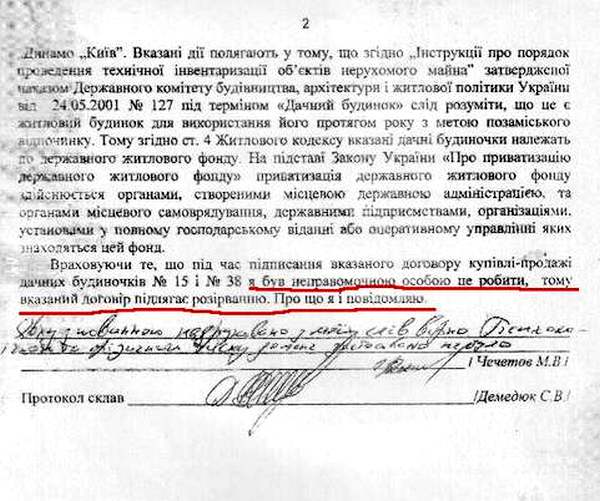 2
„Динамо „Київ". Вказані дії полягають у тому, що згідно „Інструкції про порядок
проведення технічної інвентаризації об'єктів нерухомого майна" затвердженої
наказом Державного комітету будівництва, архітектури і житлової політики України
від 24.05.2001 № 127 під терміном «Дачний будинок» слід розуміти, що це є
житловий будинок для використання його протягом року з метою позаміського
відпочинку. Тому згідно ст. 4 Житлового кодексу вказані дачні будиночки належать
до державного житлового фонду. На підставі Закону України «Про приватизацію
державного житлового фонду» приватизація державного житлового фонду
здійснюється органами, створеними місцевою державною адміністрацією, та
органами місцевого самоврядування, державними підприємствами, організаціями,
установами у повному господарському віданні або оперативному управлінні яких
знаходяться цей фонд.
Враховуючи те, що під час підписання вказаного договору купівлі-продажі
дачних будиночків № 15 і № 38 я був неправомочною особою це робити, тому
вказаний договір підлягає розірванню. Про що я і повідомляю.
надруковано з моїх слів вірно
/ Чечетов М.В./
Протокол склав /Демедюк С.В./